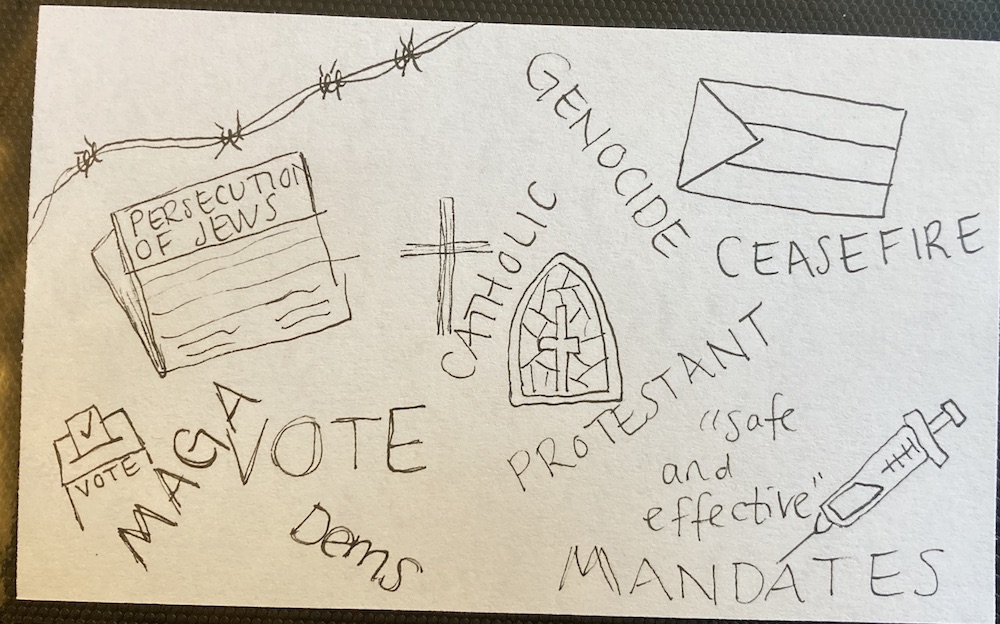 GENOCIDE
PERSECUTION
OF JEWS
CEASEFIRE
CATHOLIC
PROTESTANT
VOTE
MAGA
VOTE
Dems
"safe
and
effective"
MANDATES